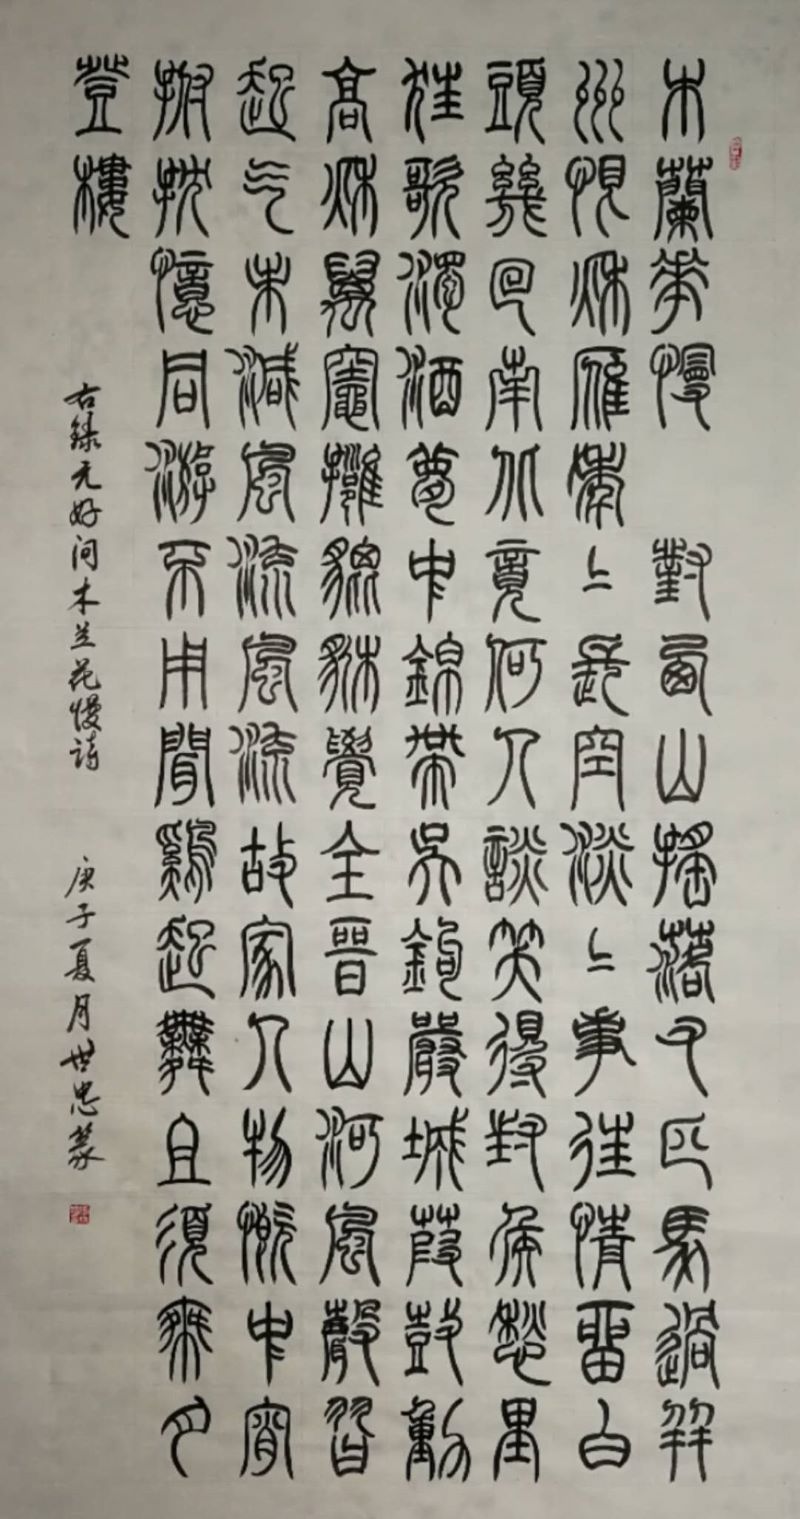 木蘭花慢 對西山搖落又匹馬過并
州恨秋雁年〻長空淡〻事往情留白
頭幾回南北竟何人談笑得封侯愁里
狂歌濁酒夢中錦帶吳鉤嚴城葭鼓動
高秋萬竈擁貔貅覺全晉山河風聲習
起气未減風流風流故家人物慨中宵
拊枕憶同游不用聞雞起舞且須乘月
登樓
右録元好问木兰花慢诗 庚子夏月世忠篆